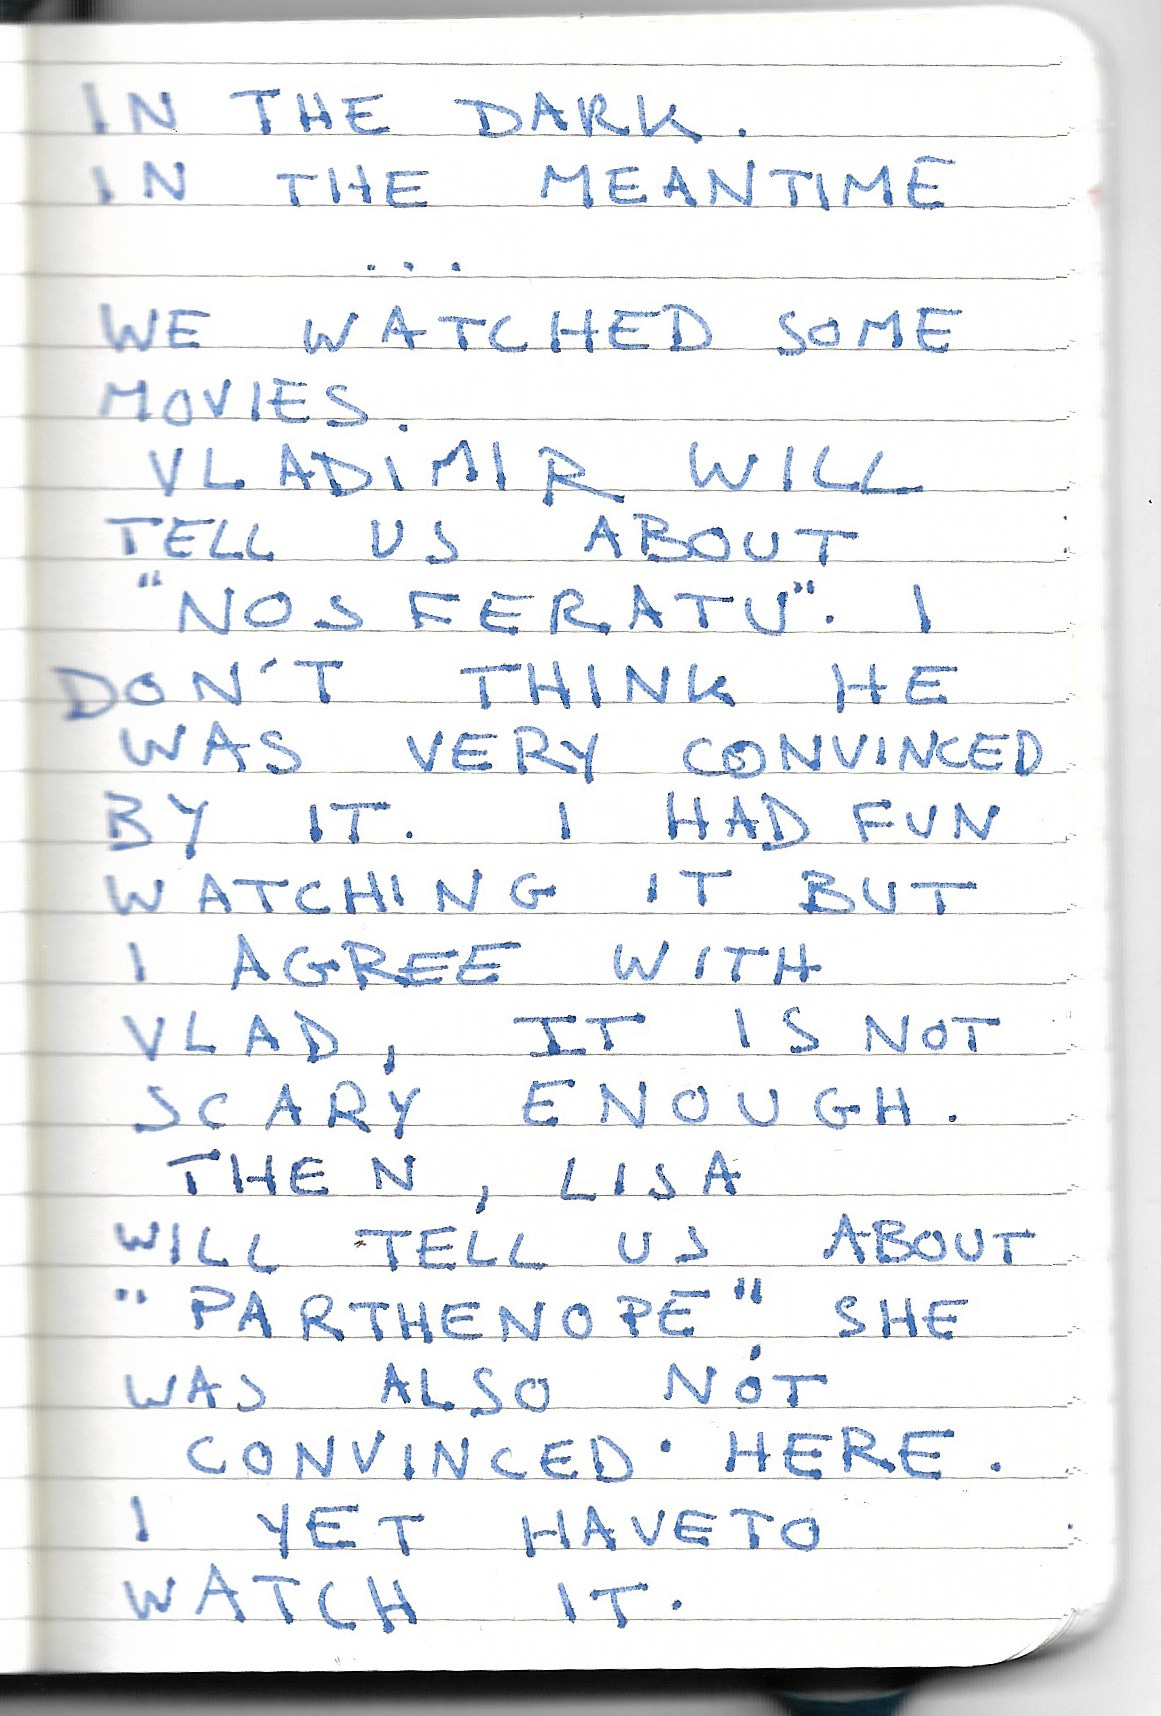 IN THE DARK.
IN THE MEANTIME
...
WE WATCHED SOME
MOVIES.
VLADIMIR WILL
TELL US ABOUT
"NOSFERATU". I
DON'T THINK HE
WAS VERY CONVINCED
BY IT. I HAD FUN
WATCHING IT BUT
I AGREE WITH
VLAD, IT IS NOT
SCARY ENOUGH.
THEN, LISA
WILL TELL US ABOUT
"PARTHENOPE". SHE
WAS ALSO NOT
CONVINCED. HERE.
I YET HAVE TO
WATCH IT.